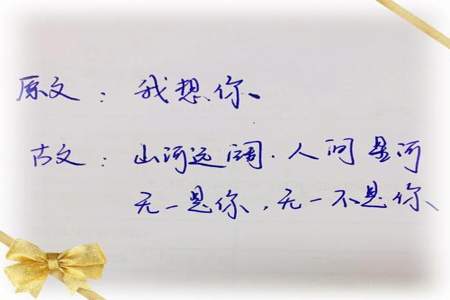 原文：我想你、
古文：山河远阔．人间星河
无一是你，无一不是你、